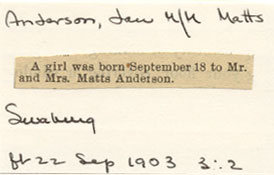 Anderson, Jan M/M Matts
A girl was born September 18 to Mr.
and Mrs. Matts Anderson.
Swaburg
ft 22 Sep 1903 3:2